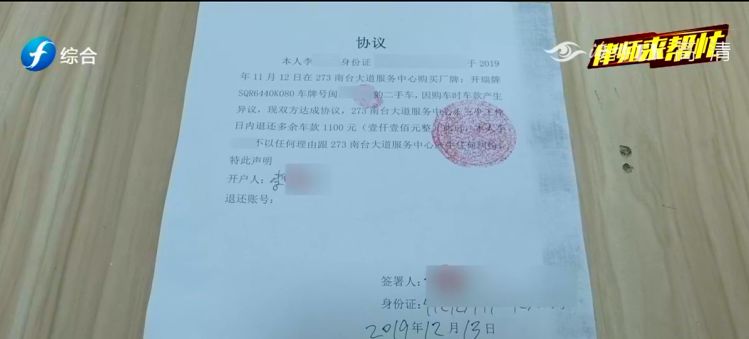 综合
律师来帮忙
协议
本人李 身份证 于 2019
年 11 月 12 日在 273 南台大道服务中心购买厂牌：开瑞牌
SQR6440K080 车牌号闽 的二手车，因购车时车款产生
异议，现双方达成协议，273 南台大道服务中心 工作
日内退还多余车款 1100 元（壹仟壹佰元整 本人
不以任何理由跟 273 南台大道服务中心 任何纠纷，
特此声明
开户人：李
退还账号：
签署人：
身份证：
2019年12月13日